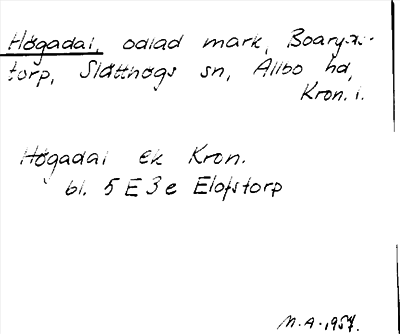 Högadal, odlad mark, Boaryd-
torp, Slätthögs sn, Allbo hd,
Kron. l.
Högadal Ek Kron.
bl. 5 E 3 e Elofstorp
M.A. 1957.